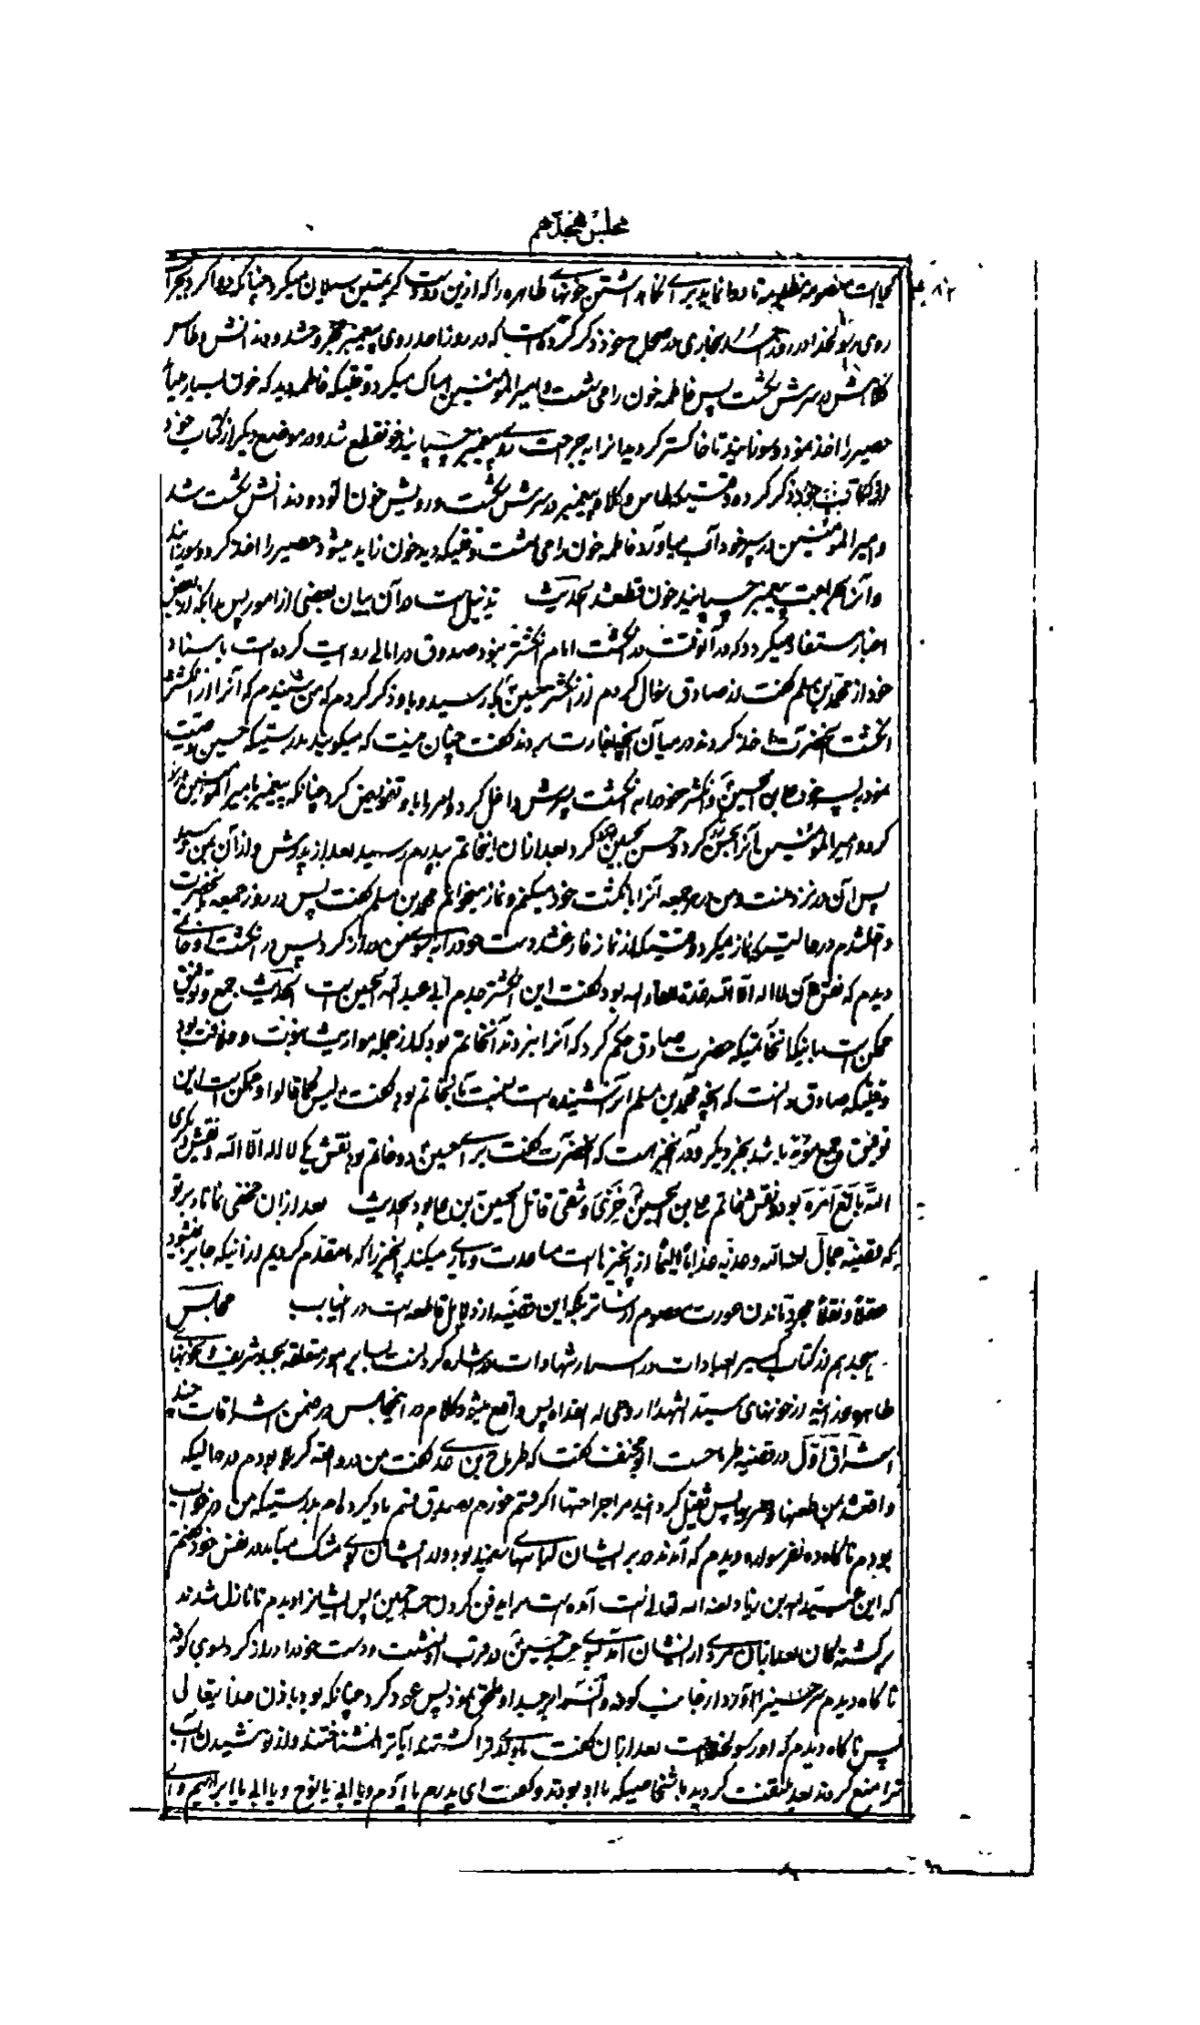 مجلس هجدهم
۸۰۲
روی مبارک و در روز احد بخاری در صحیح خود ذکر کرده است که در روز احد روی پیغمبر مجروح شد و دندانش و طاس
کلاهش در سرش شکست پس فاطمه خون را می شست و امیرالمؤمنین امساک میکرد وقتیکه فاطمه دید که خون بسیار میآید
حصیر را اخذ نمود و سوزانید تا خاکستر کرد بعد از آن بجراحت روی پیغمبر چسپانید خون قطع شد و در موضع دیگر از کتاب خود
ذکر کرده وقتیکه طاس و کلاه پیغمبر در سرش شکست و رویش خون آلود و دندانش شکست شد
و امیرالمؤمنین در سپر خود آب میآورد و فاطمه خون را می شست وقتیکه دید خون زاید میشود حصیر را اخذ کرد و سوزانید
و آنرا بجراحت پیغمبر چسپانید خون قطع شد الحدیث تذییل است در آن بیان بعضی از امور پس بدانکه از بعضی
اخبار مستفاد میگردد که در آنوقت در انگشت امام انگشتر نبود صدوق در امالی روایت کرده است باسناد
خود از محمد بن مسلم گفت از صادق سؤال کردم از انگشتر حسین که بکه رسید و باو ذکر کردم که من شنیدم که آنرا از انگشتر
انگشت آنحضرت اخذ کردند در میان آنچه بغارت بردند گفت چنان نیست که میگویید بدرستیکه حسین وصیت
نمود به پسر خود علی بن الحسین و انگشتر خود را به انگشت پسرش داخل کرد و امر را باو تفویض کرد چنانکه پیغمبر بامیرالمؤمنین
کرد و امیرالمؤمنین آنرا بحسن کرد و حسن بحسین کرد بعد از آن انخاتم به پدرم رسید بعد از پدرش و از آن بمن رسید
پس آن در نزد منست و من در هر جمعه آنرا بانگشت خود میکنم و نماز میخوانم محمد بن مسلم گفت پس در روز جمعه بآنحضرت
داخل شدم در حالتیکه نماز میکرد وقتیکه از نماز فارغ شد دست خود را بسوی من دراز کرد پس در انگشت او خاتمی
دیدم که نقش آن لا اله الا الله عدة للقاء الله بود گفت این انگشتر جدم ابی عبد الله الحسین است الحدیث جمع و توفیق
ممکن است باینکه انخاتمیکه حضرت صادق حکم کرد که آنرا نبردند آنخاتم بود که از جمله مواریث نبوت و خلافت بود
وقتیکه صادق دانست که آنچه محمد بن مسلم آنرا شنیده است نسبت بآنخاتم بود گفت لیس کما قالوا و ممکن است این
توفیق و جمع مؤید باشد بخبر دیگر و در آنخبر است که آنحضرت گفت برای حسین دو خاتم بود نقش یکی لا اله الا الله و نقش دیگری
الله بالغ امره بود و نقش خاتم علی بن الحسین خزی و شقی قاتل الحسین بن علی بود الحدیث بعد از آن مخفی نماناد بر تو
که قضیه جمال لعنه الله و عذبه عذابا الیما از آنخبر است مساعدت و یاری میکند آنخبر را که ما مقدم کردیم از آنکه جایز نمیشود
عقلا و نقلا مجرد ماندن عورت معصوم از ساتر بلکه این قضیه از دلایل قاطعه است در این باب مجلس
هجدهم از کتاب اکسیر العبادات در اسرار شهادات در اشاره کردنست بسایر امور متعلقه بجسد شریف و بخونهای
طاهره از خونهای سید الشهدا روحی له الفداء پس واقع میشود کلام در اینمجلس در ضمن اشراقات چند
اشراق اول در قضیه طرماح است ابو مخنف گفت که طرماح بن عدی گفت من در واقعه کربلا بودم در حالیکه
واقع شد بمن طعنها و ضربها پس ثقیل گردانیدم را جراحتها اگر قسم خورم بصدق قسم یاد کرده ام بدرستیکه من در خواب
بودم ناگاه ده نفر سواره دیدم که آمدند در بر ایشان لباسهای سفید بود و از ایشان بوی مشک میآمد در نفس خود گفتم
که این عبید الله بن زیاد لعنه الله تعالی است آمده است برای دفن کردن جسد حسین پس ایشانرا دیدم تا نازل شدند
بر کشته گان بعد از آن مردی از ایشان آمد بسوی جسد حسین در قرب او نشست و دست خود را دراز کرد بسوی کوفه
ناگاه دیدم سر حسین را آورد از جانب کوفه و آنسر را بجسد او ملحق نمود پس عود کرد چنانکه بود باذن خدایتعالی
پس ناگاه دیدم که بعد از آن گفت ای ولد ترا کشتند آیا ترا نشناختند و از نوشیدن آب
ترا منع کردند بعد ملتفت گردید باشخاصیکه با او بودند و گفت ای پدرم یا آدم و یا ابی یا نوح و یا ابی یا ابراهیم و ای